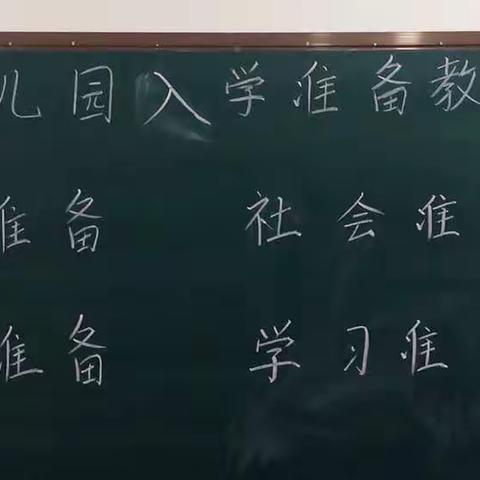 儿园入学准备教
准备 社会准
准备 学习准